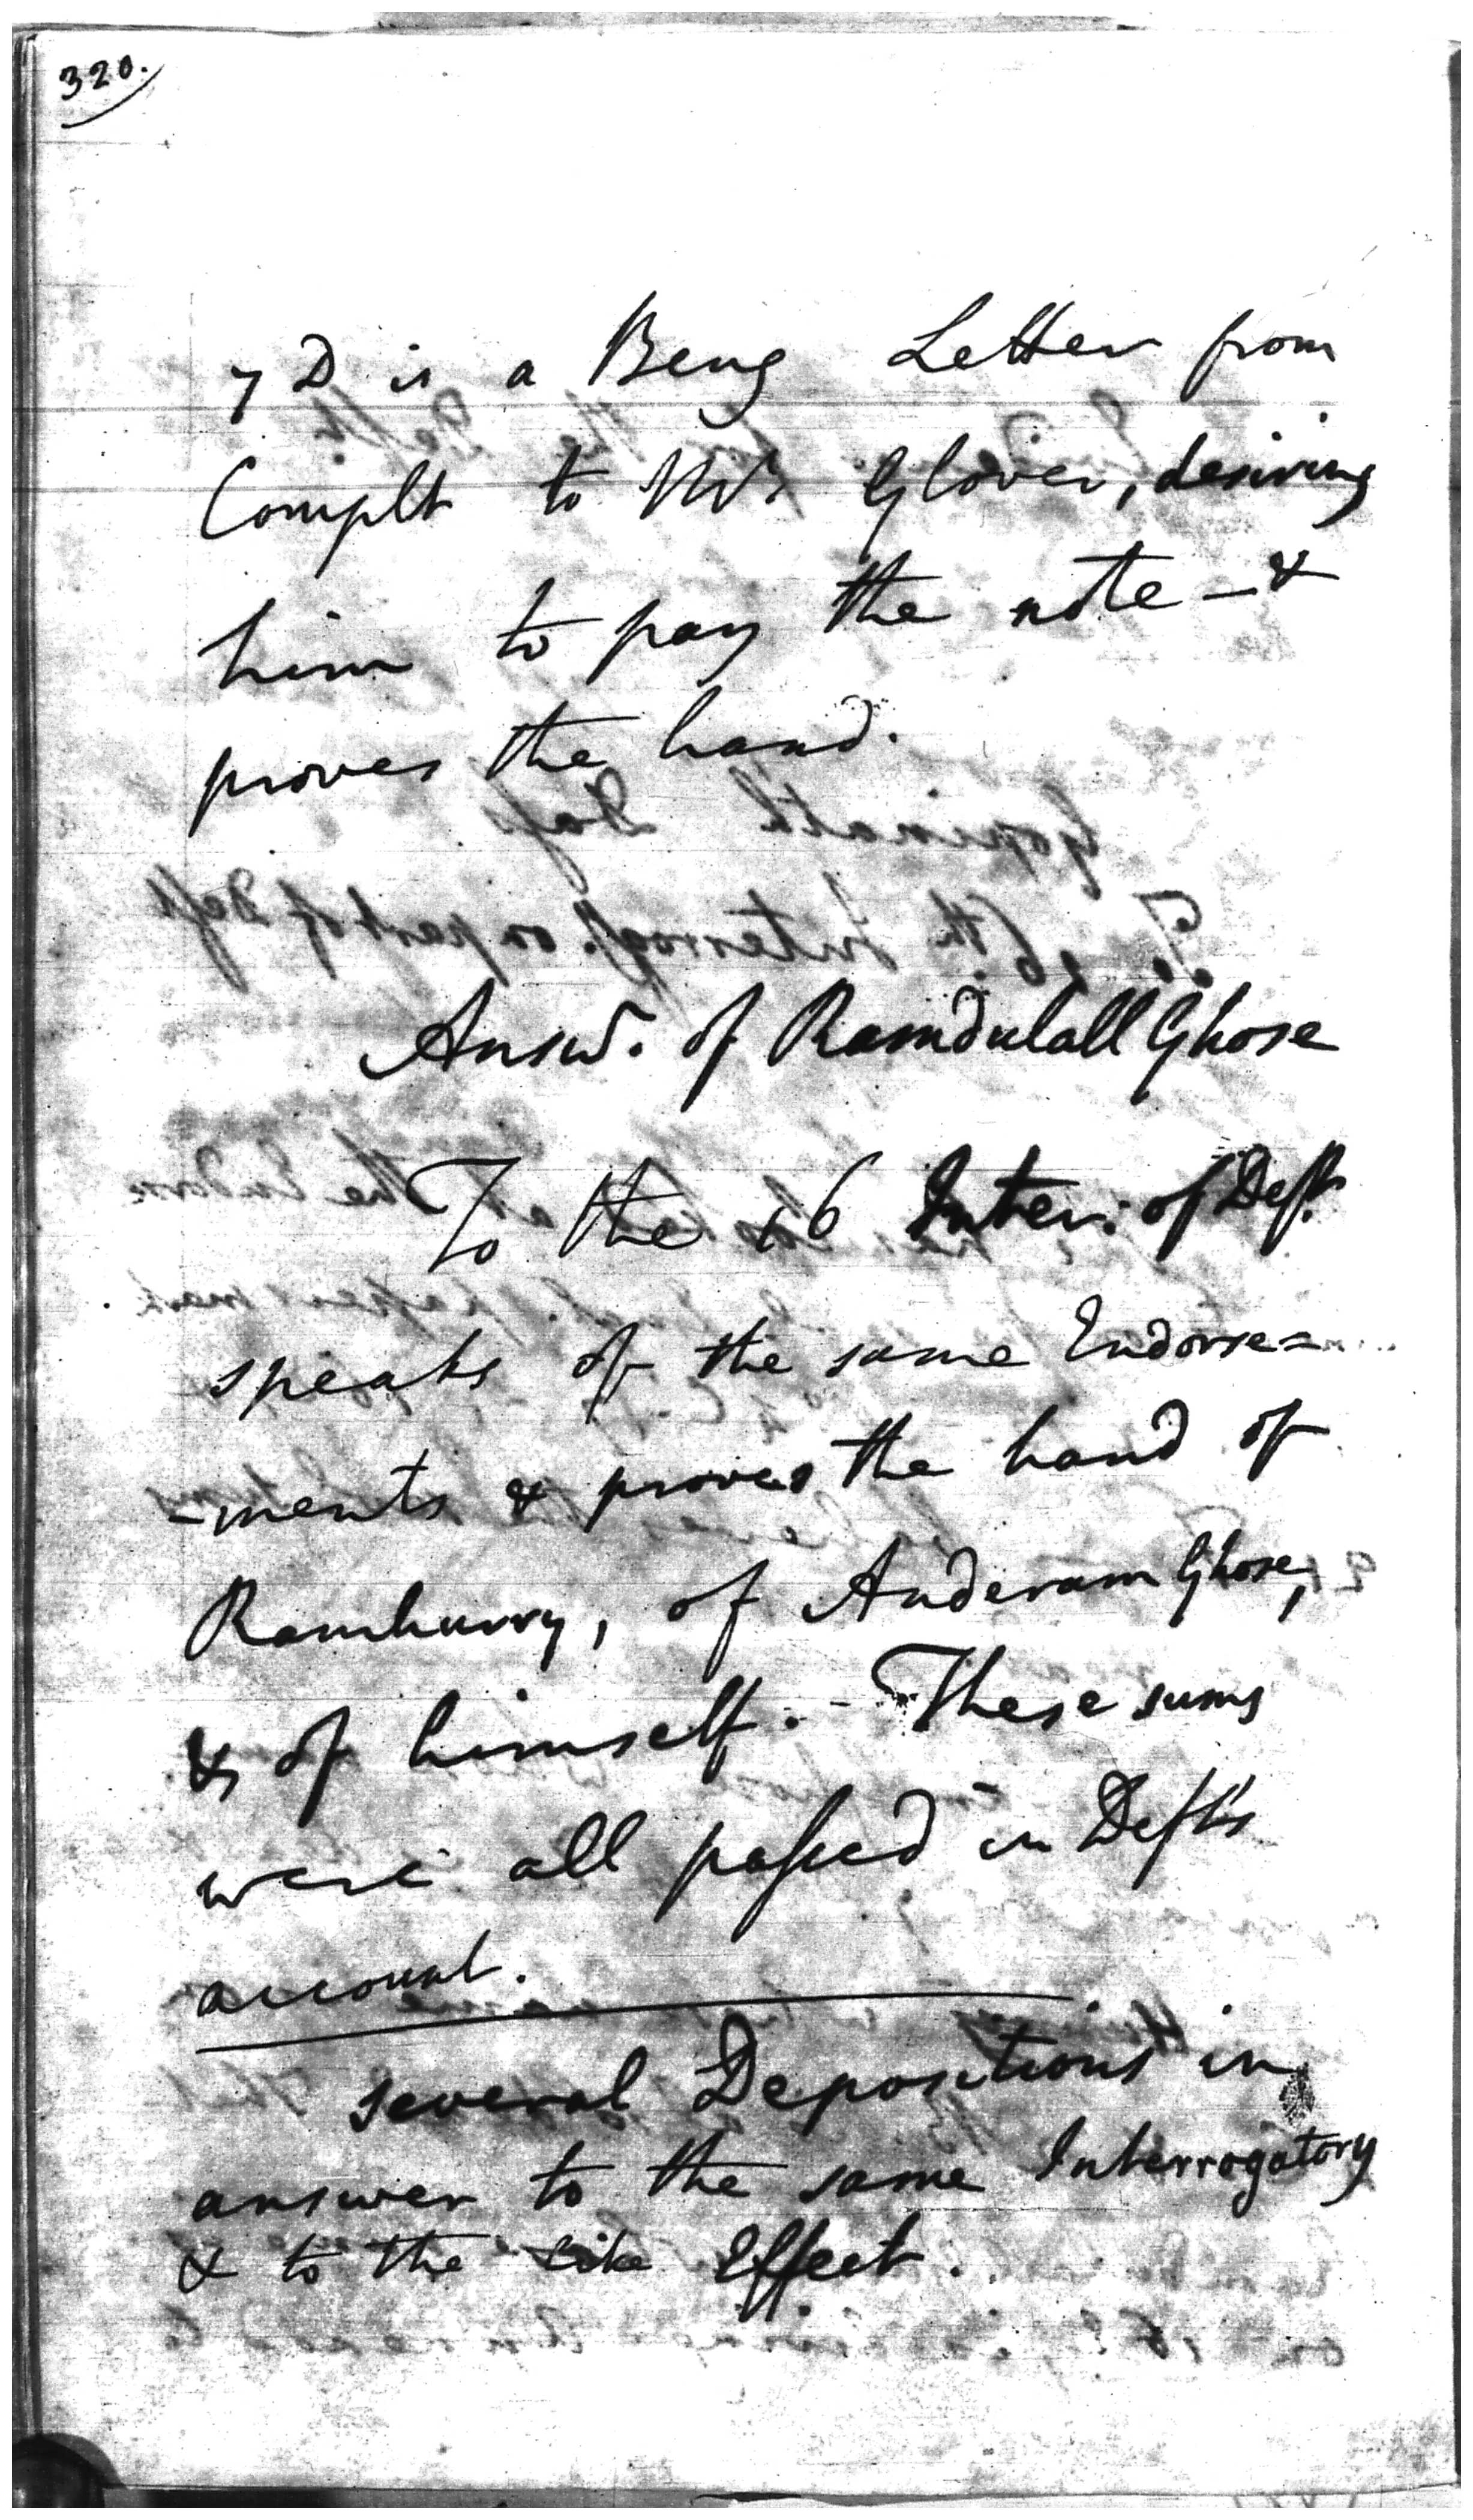 320.
7 D is a Beng Letter from
Complt to Mr Glover, desiring
him to pay the note - &
proves the hand.
Answr. of Ramdulall Ghose
To the 16 Inter: of Deft
speaks of the same Endorse=
-ments & proves the hand of
Ramhurry, of Anderam Ghose,
& of himself. - These sums
were all passed in Deft's
account.
several Depositions in
answer to the same Interrogatory
& to the like Effect.